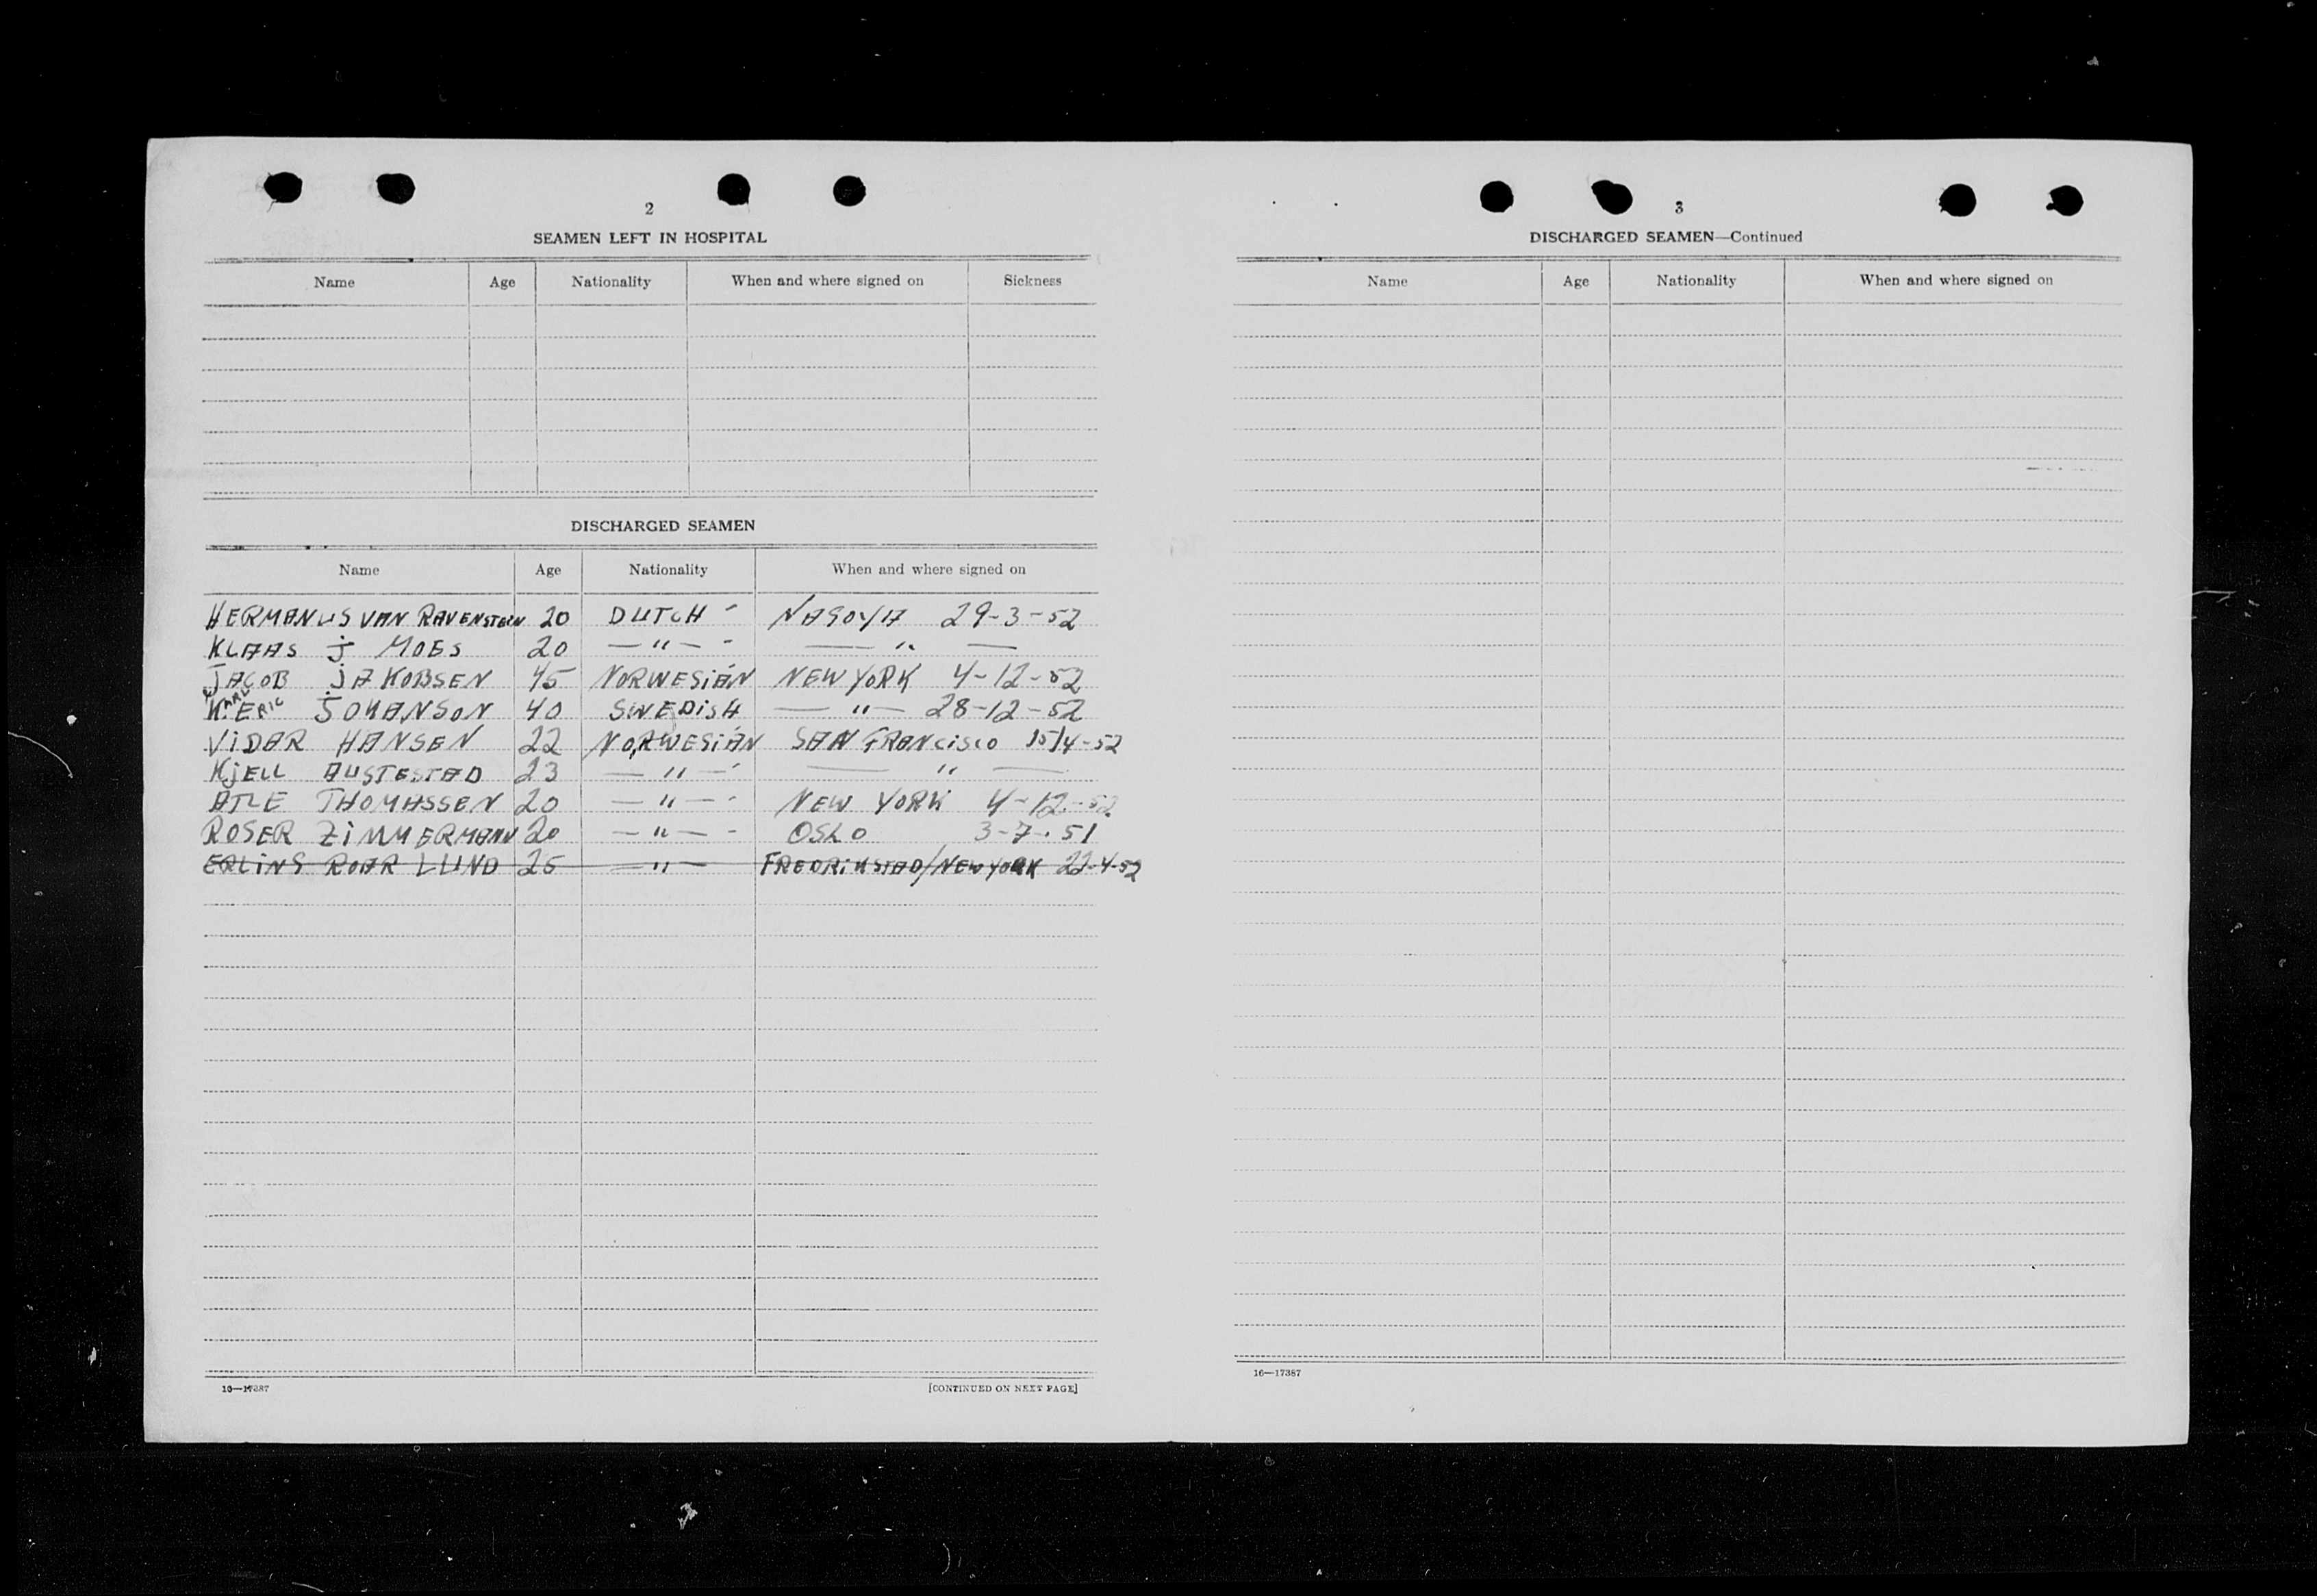 2
SEAMEN LEFT IN HOSPITAL
Name Age Nationality When and where signed on Sickness
DISCHARGED SEAMEN
Name Age Nationality When and where signed on
HERMANUS VAN RAVENSTEIN 20 DUTCH - NAGOYA 29-3-52
KLAAS J MOES 20 — " — - — " —
JACOB JAKOBSEN 45 NORWEGIAN NEW YORK 4-12-52
KARL
K. ERIC JOHANSON 40 SWEDISH — " — 28-12-52
VIDAR HANSEN 22 NORWEGIAN SAN FRANCISCO 15/4-52
KJELL AUSTESTAD 23 — " — - — " —
ATLE THOMASSEN 20 — " — - NEW YORK 4-12-52
ROGER ZIMMERMANN 20 — " — - OSLO 3-7-51
ERLING ROAR LUND 25 — " — FREDRIKSTAD/NEW YORK 22-4-52
16—17387
[CONTINUED ON NEXT PAGE]
3
DISCHARGED SEAMEN—Continued
Name Age Nationality When and where signed on
16—17387